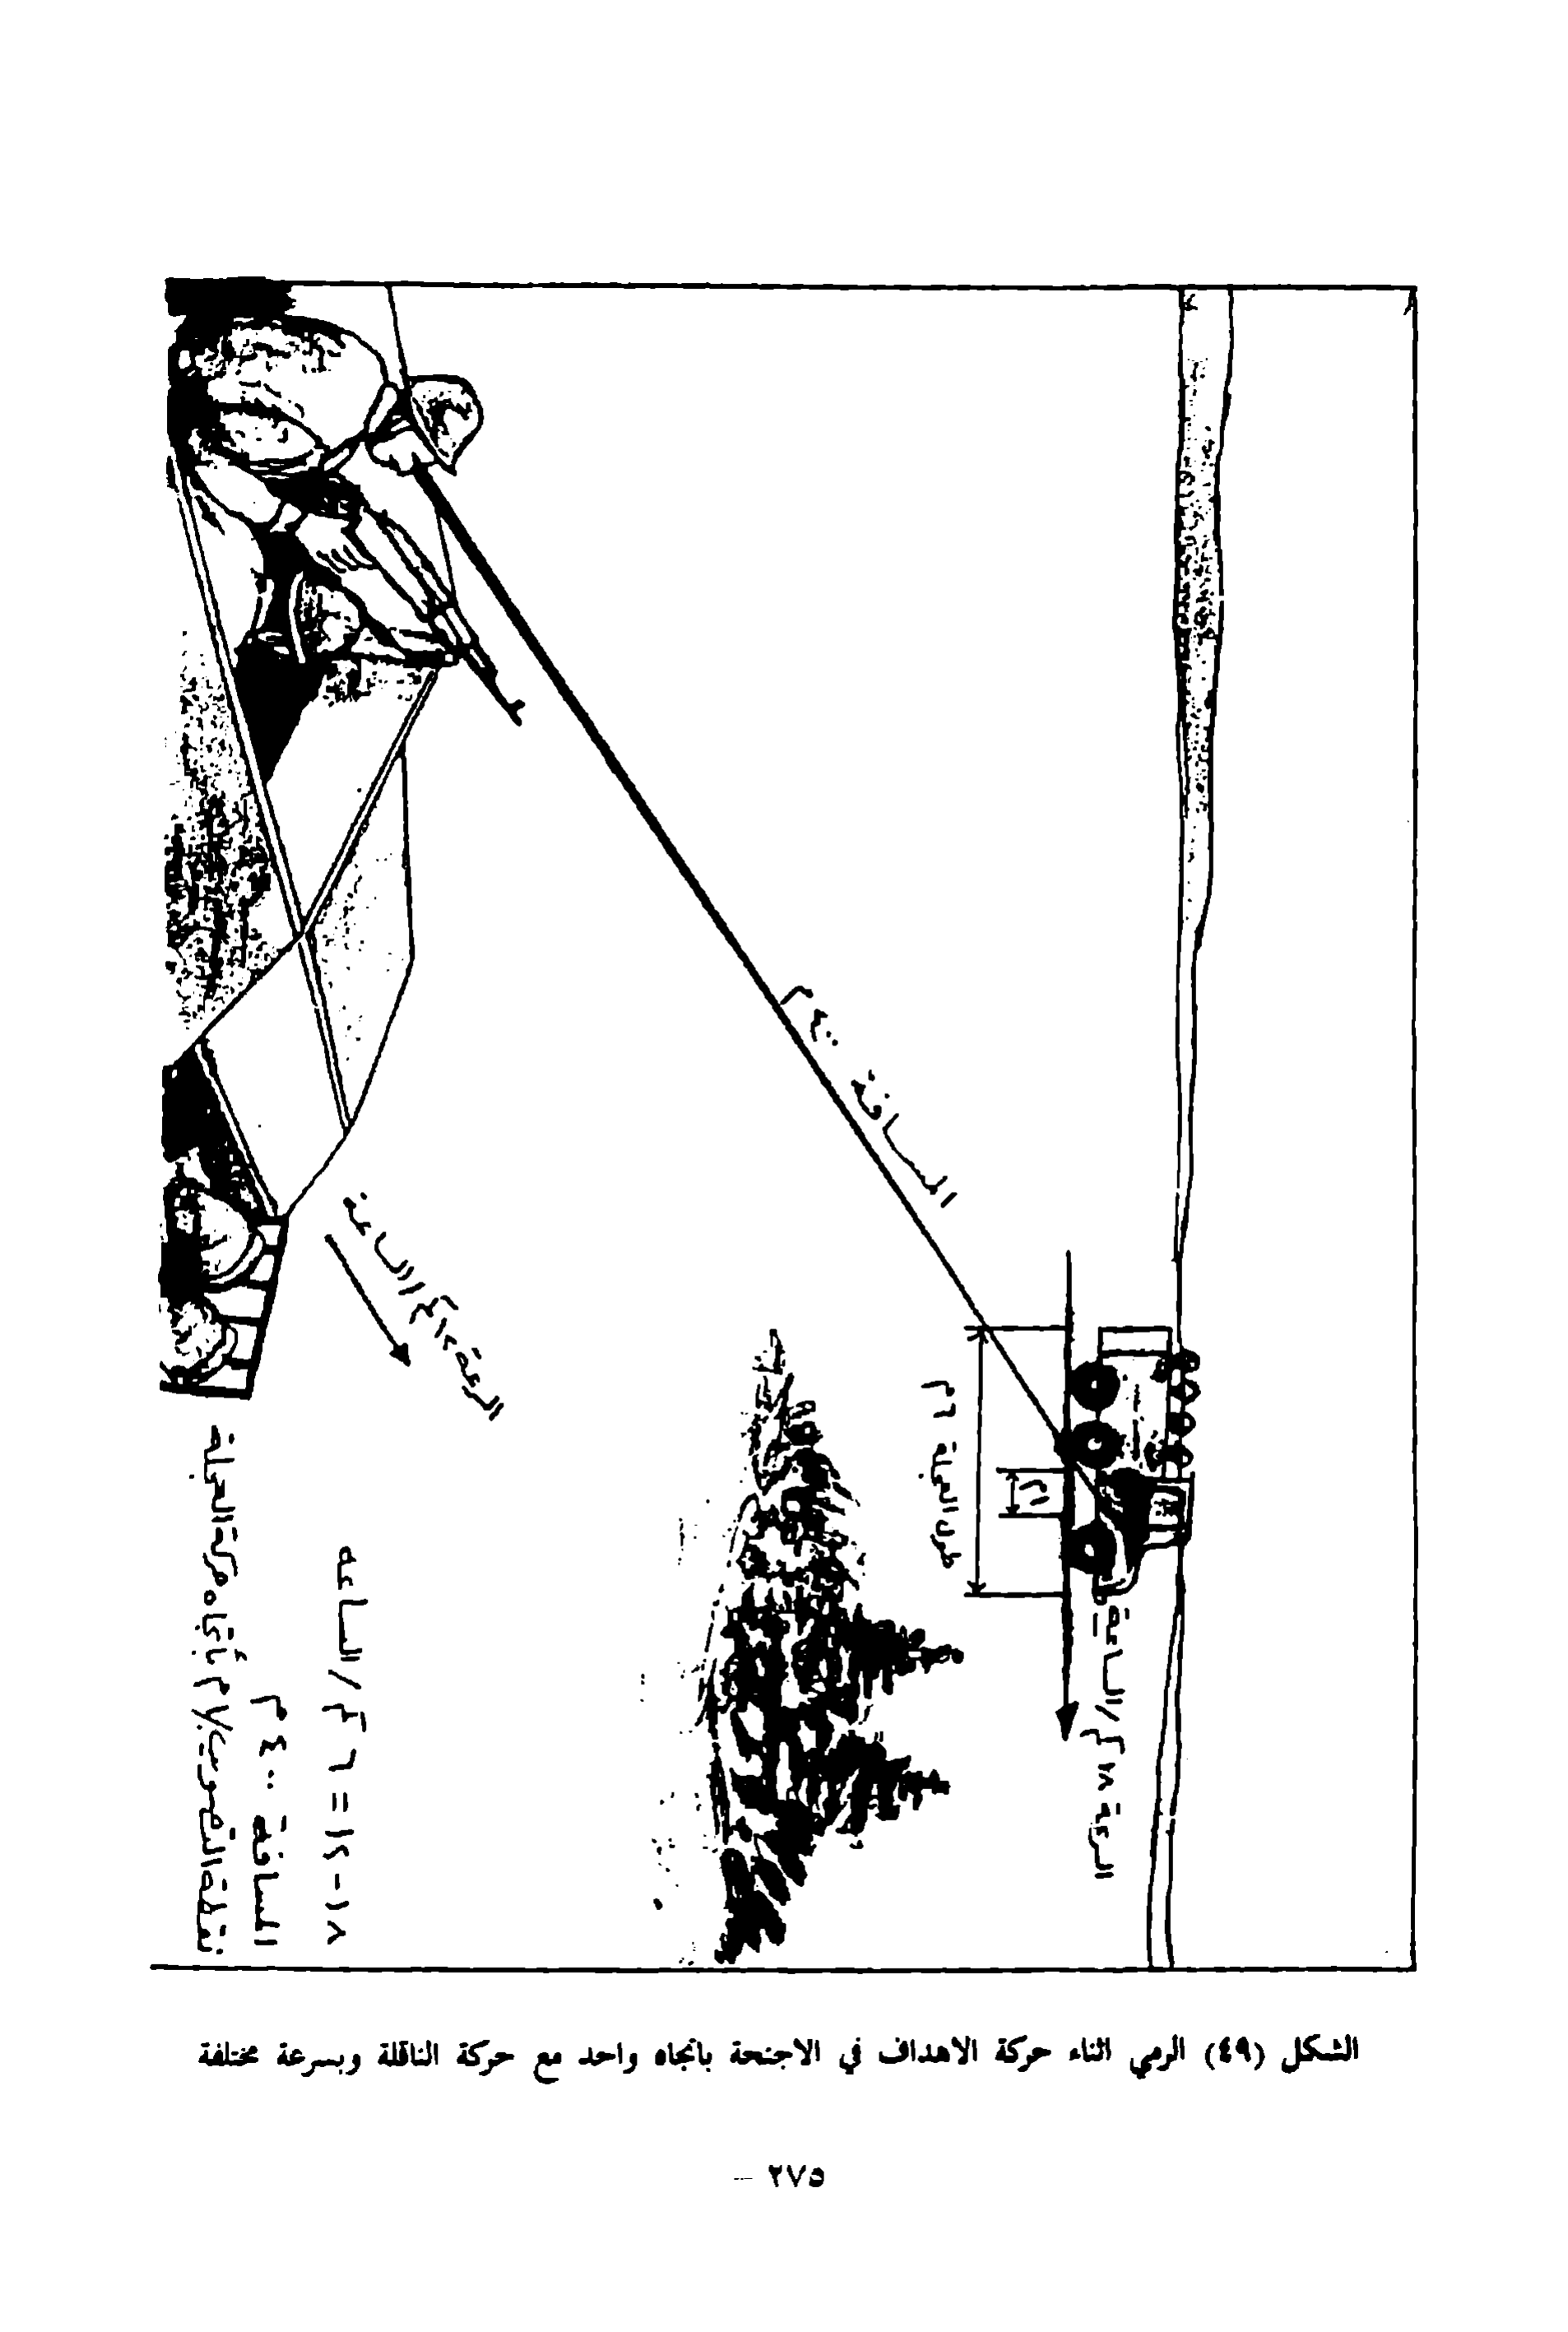 المسافة ٤٠٠ م
السرعة ١٢ كم/الساعة
طول العجلة ٦ م
١م
السرعة ١٨ كم/الساعة
١٨-١٢=٦ كم/الساعة
المسافة ٤٠٠ م
نقطة التصويب ١/٢ م بأتجاه حركة العجلة
الشكل (٤٩) الرمي اثناء حركة الاهداف في الاجنحة بأتجاه واحد مع حركة الناقلة وبسرعة مختلفة
٢٧٥ –